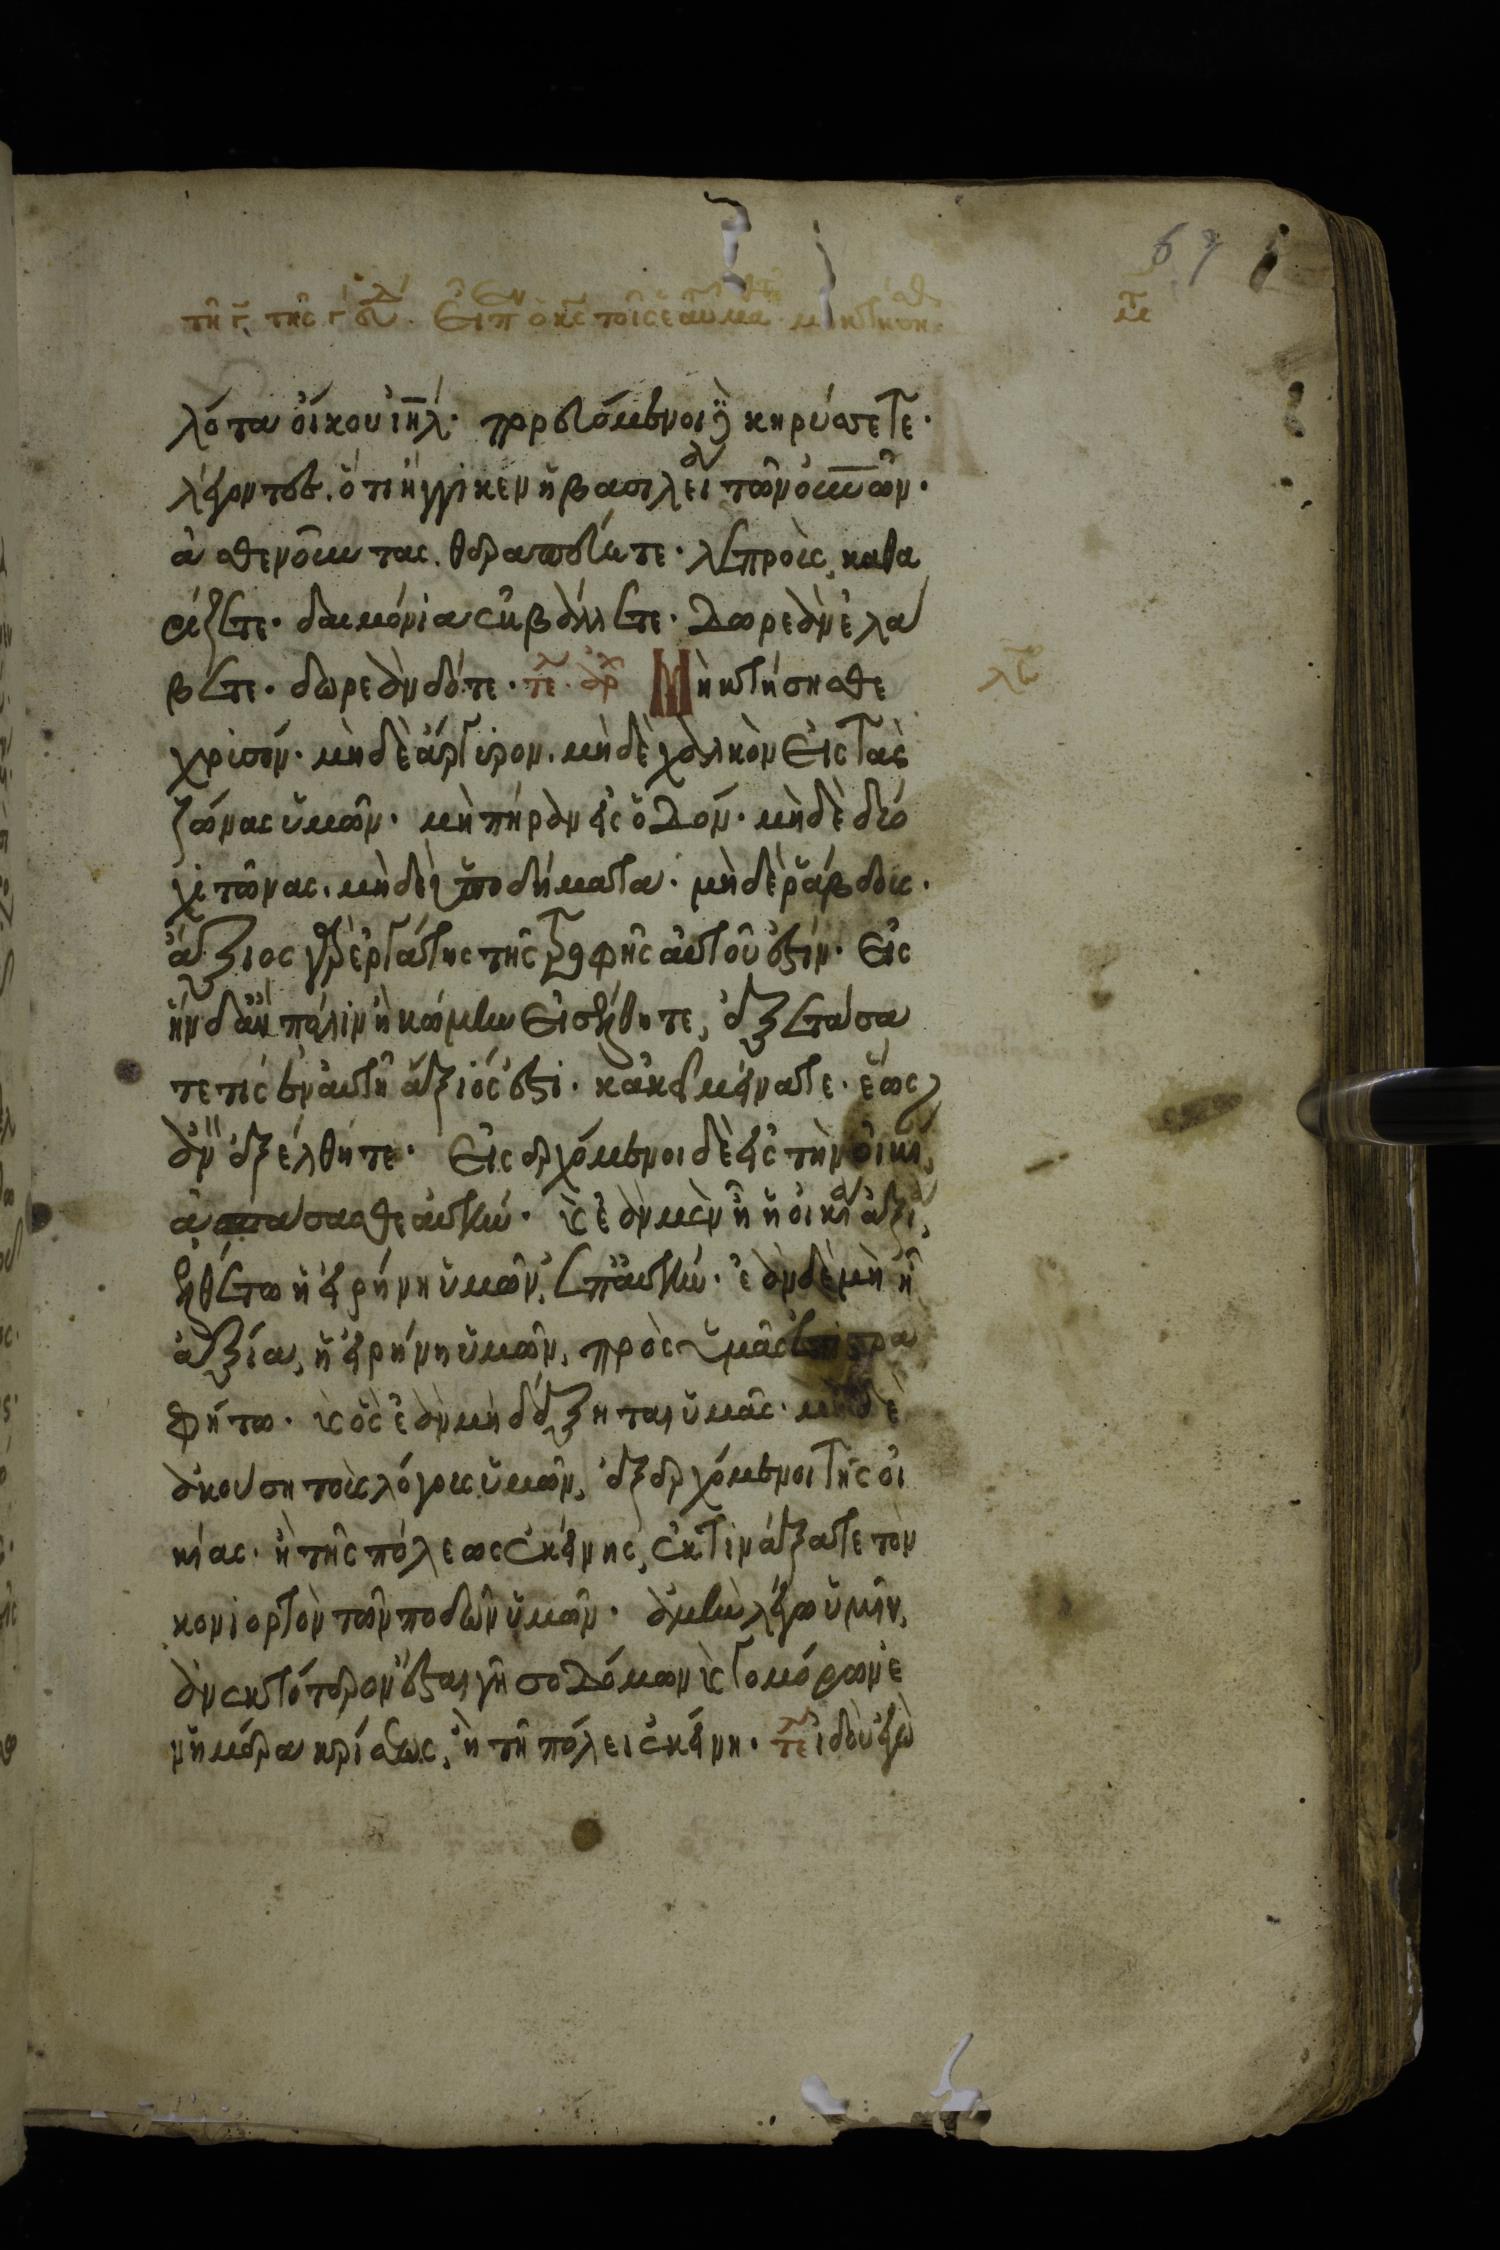 τῇ γ τῆς γ εβδ. Εἶπεν ὁ κς τοῖς ἑαυτοῦ μαθ. μὴ κτήσησθ
λότα οἴκου ἰηλ. πορευόμενοι δὲ κηρύσσετε.
λέγοντες. ὅτι ἤγγικεν ἡ βασιλεία τῶν οὐνων.
ἀσθενοῦντας. θεραπεύετε. λεπροὺς, καθα
ρίζετε. δαιμόνια ἐκβάλλετε. δωρεὰν ἐλά
βετε. δωρεὰν δότε. τε. ἀρ Μὴ κτήσησθε
χρισόν. μὴδὲ ἄργυρον. μὴδὲ χαλκὸν εἰς τὰς
ζώνας ὑμῶν. μὴ πήραν εἰς ὁδόν. μὴδὲ δύο
χιτῶνας. μὴδὲ ὑποδήματα. μὴδὲ ῥάβδους.
ἄξιος γὰρ ἐργάτης τῆς τροφῆς αὐτοῦ ἐστίν. Εἰς
ἣν δἂν πόλιν ἢ κώμην εἰσέλθητε, ἐξετάσα
τε τίς ἐν αὐτῇ ἄξιός ἐστι. κἀκεῖ μείνατε. ἕως
ἂν ἐξέλθητε. Εἰσερχόμενοι δὲ εἰς τὴν οἰκί,
ἀσπάσασθε αὐτήν. κ ἐὰν μὲν ᾖ ἡ οἰκία ἀξία,
ἐλθέτω ἡ εἰρήνη ὑμῶν, ἐπ αὐτήν. ἐὰν δὲ μὴ ᾖ
ἀξία, ἡ εἰρήνη ὑμῶν, πρὸς ὑμᾶς ἐπιστρα
φήτω. κ ὃς ἐὰν μὴ δέξηται ὑμᾶς. μὴδὲ
ἀκούσῃ τοὺς λόγους ὑμῶν, ἐξερχόμενοι τῆς οἰ
κίας. ἢ τῆς πόλεως ἐκείνης, ἐκτινάξατε τὸν
κονιορτὸν τῶν ποδῶν ὑμῶν. ἀμὴν λέγω ὑμῖν,
ἀνεκτότερον ἔσται γῇ σοδόμων κ γομόρων ἐ
ν ἡμέρα κρίσεως, ἢ τῇ πόλει ἐκείνῃ. τε ἰδοὺ ἐγὼ